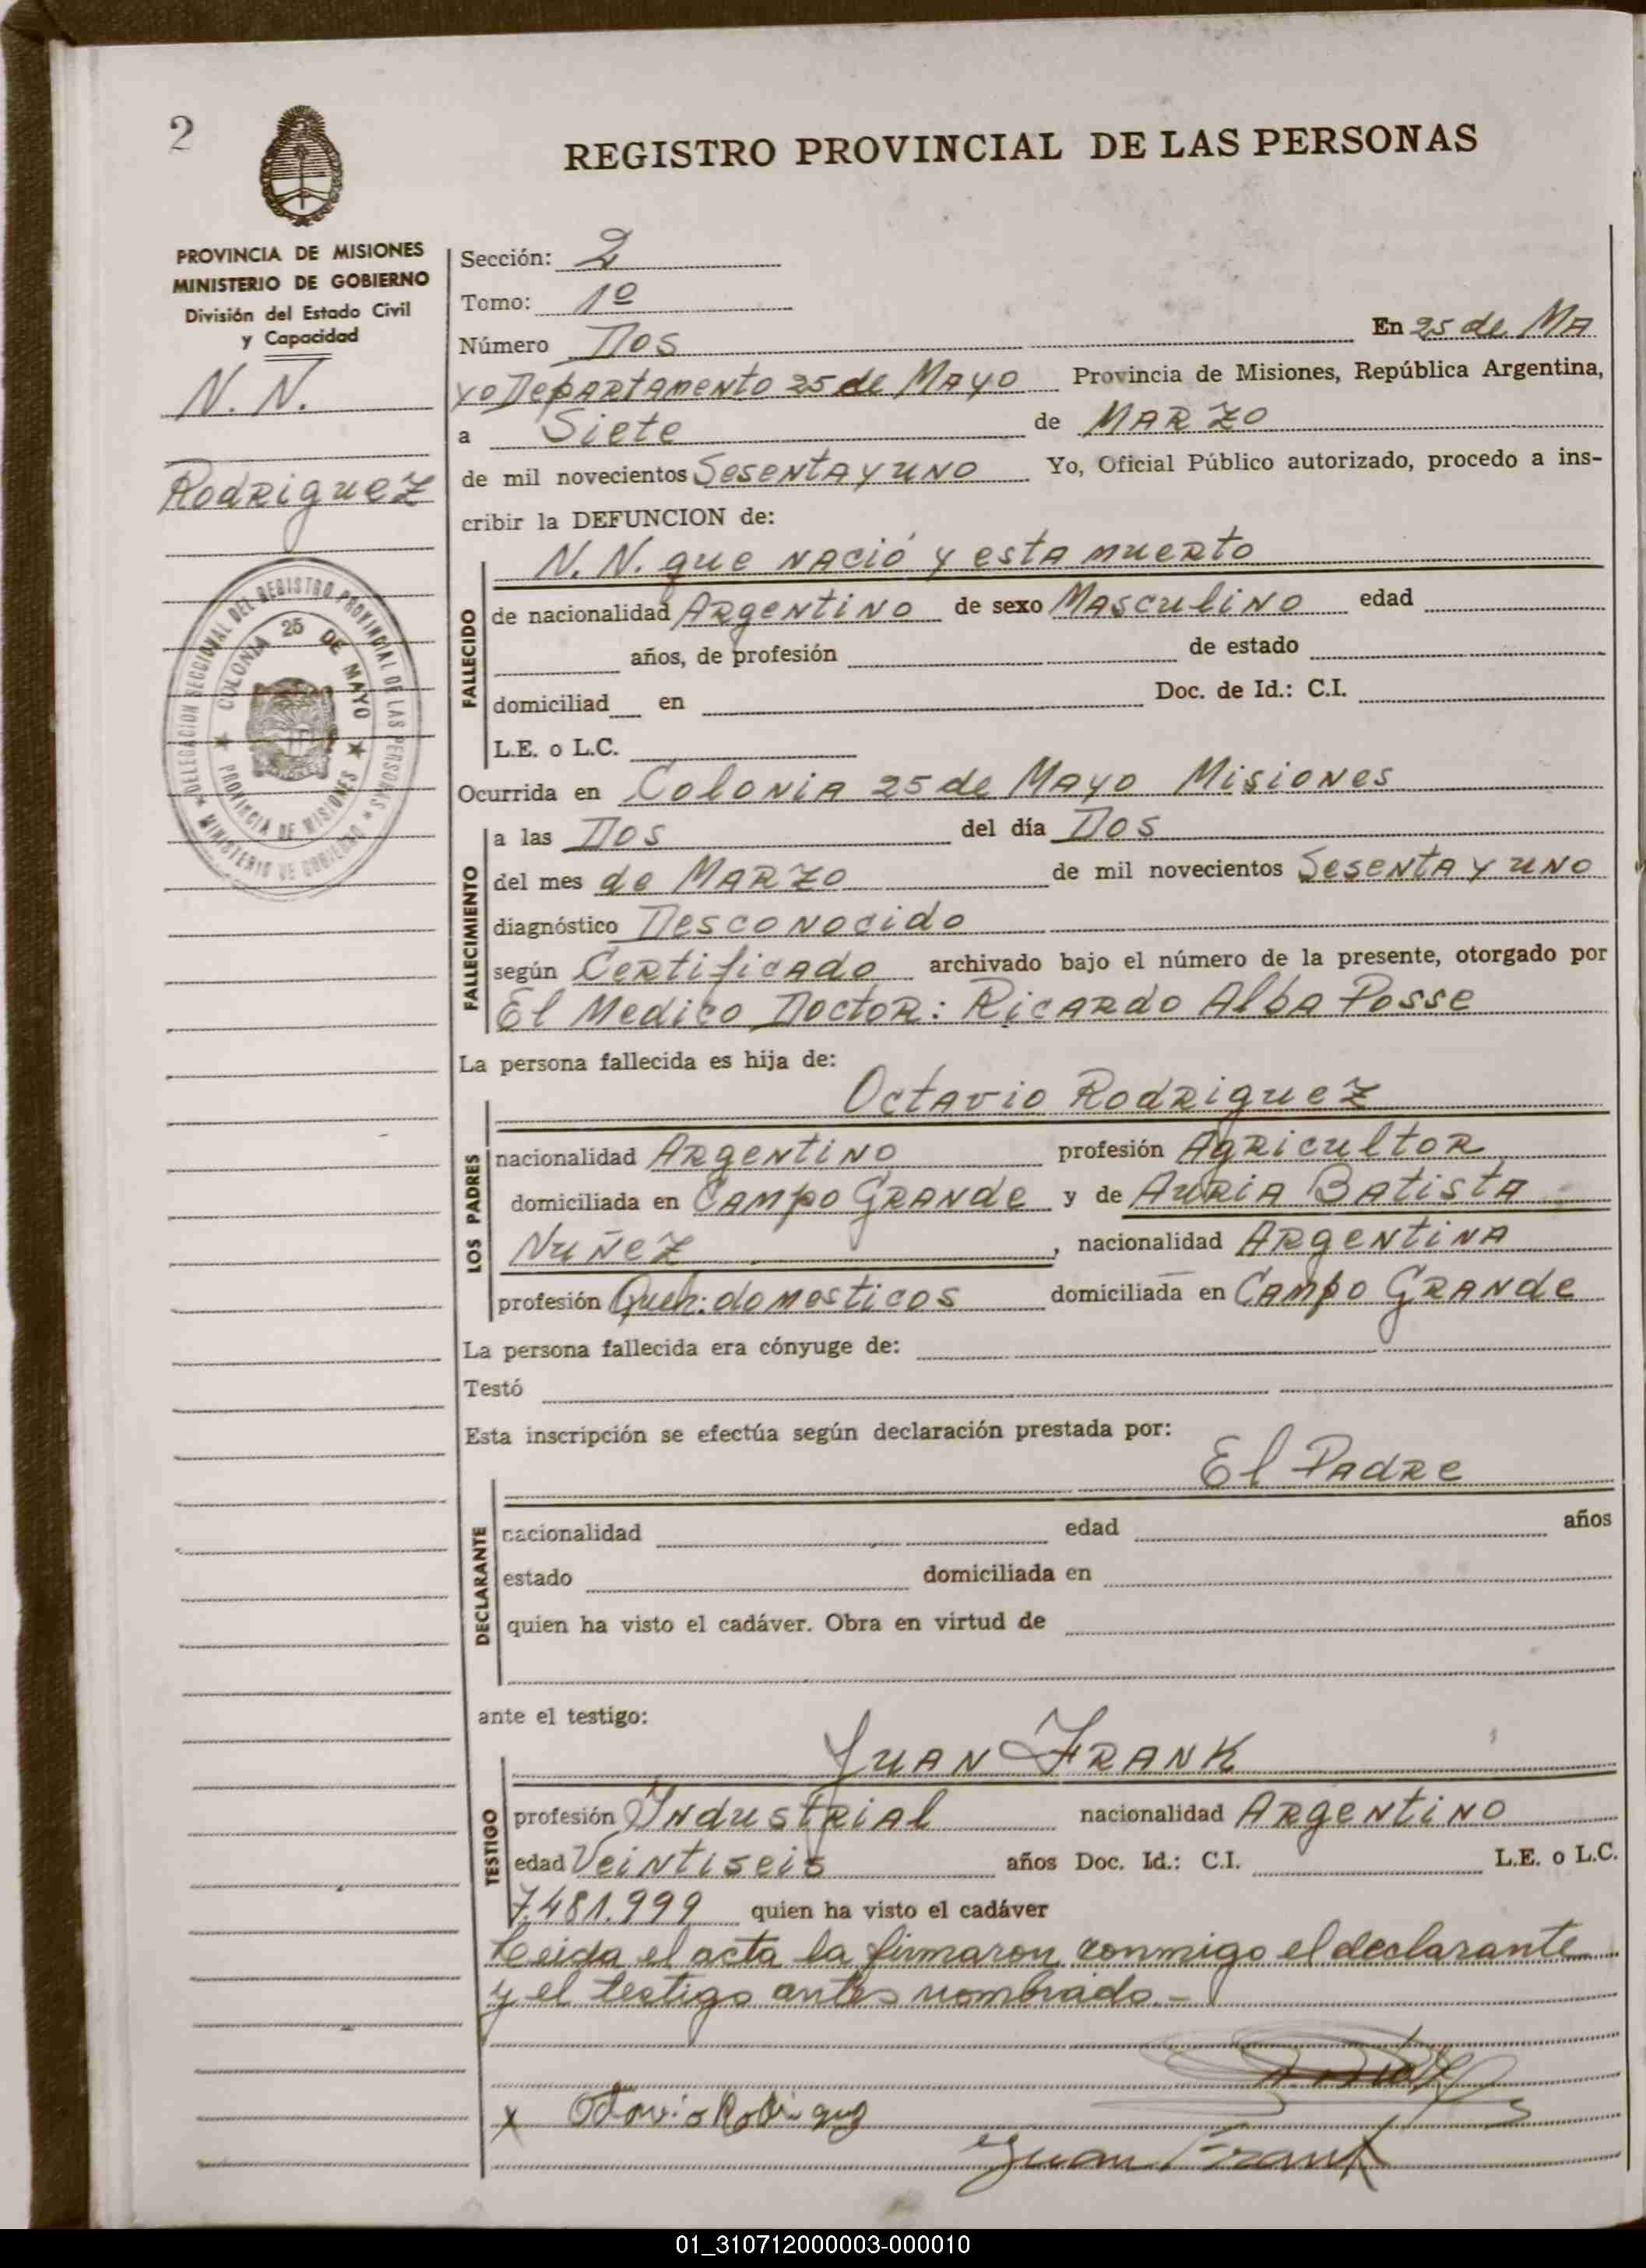 2
REGISTRO PROVINCIAL DE LAS PERSONAS
PROVINCIA DE MISIONES
MINISTERIO DE GOBIERNO
División del Estado Civil
y Capacidad
N. N.
Rodriguez
DELEGACION SECCIONAL DEL REGISTRO PROVINCIAL DE LAS PERSONAS
MINISTERIO DE GOBIERNO
COLONIA 25 DE MAYO
PROVINCIA DE MISIONES
Sección: 2
Tomo: 1º
Número Dos En 25 de MA
yo Departamento 25 de Mayo Provincia de Misiones, República Argentina,
a Siete de MARZO
de mil novecientos Sesenta y uno Yo, Oficial Público autorizado, procedo a ins-
cribir la DEFUNCION de:
N. N. que nació y esta muerto
FALLECIDO
de nacionalidad Argentino de sexo Masculino edad
años, de profesión de estado
domiciliad en Doc. de Id.: C.I.
L.E. o L.C.
Ocurrida en Colonia 25 de Mayo Misiones
FALLECIMIENTO
a las Dos del día Dos
del mes de Marzo de mil novecientos Sesenta y uno
diagnóstico Desconocido
según Certificado archivado bajo el número de la presente, otorgado por
El Medico Doctor: Ricardo Alba Posse
La persona fallecida es hija de:
Octavio Rodriguez
LOS PADRES
nacionalidad Argentino profesión Agricultor
domiciliada en Campo Grande y de Auria Batista
Nuñez, nacionalidad Argentina
profesión Queh. domesticos domiciliada en Campo Grande
La persona fallecida era cónyuge de:
Testó
Esta inscripción se efectúa según declaración prestada por:
El Padre
DECLARANTE
nacionalidad edad años
estado domiciliada en
quien ha visto el cadáver. Obra en virtud de
ante el testigo:
Juan Frank
TESTIGO
profesión Industrial nacionalidad Argentino
edad Veintiseis años Doc. Id.: C.I. L.E. o L.C.
7.481.999 quien ha visto el cadáver
Leida el acta la firmaron conmigo el declarante
y el testigo antes nombrado.-
x
Juan Frank
01_310712000003-000010